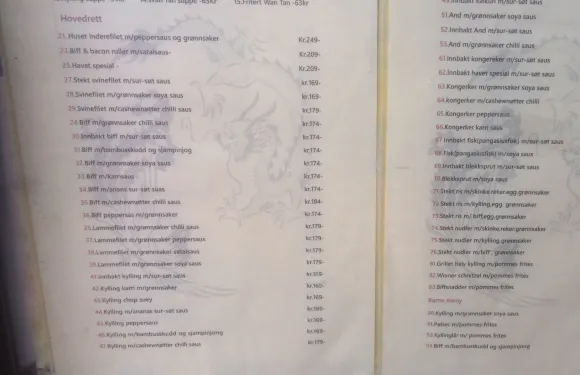 suppe -65kr
15.Friert Wan Tan -63kr
Hovedrett
21.Huset Inderefilet m/peppersaus og grønnsaker Kr.249-
22.Biff & bacon ruller m/sataisaus- Kr.209-
25.Havet spesial - Kr.209-
27.Stekt svinefilet m/sur-søt saus kr.169-
28.Svinefilet m/grønnsaker soya saus kr.169-
29.Svinefilet m/cashewnøtter chilli saus kr.179-
28.Biff m/grønnsaker chilli saus kr.174-
30.Innbakt biff m/sur-søt saus kr.174-
31.Biff m/bambusskudd og sjampinjog kr.174-
32.Biff m/grønnsaker soya saus kr.174-
33.Biff m/karrisaus kr.174-
34.Biff m/anans sur-søt saus kr.174-
35.Biff m/cashewnøtter chilli saus kr.184-
36.Biff peppersas m/grønnsaker kr.174-
m/grønnsaker chilli saus kr.179-
37.Lammefilet m/grønnsaker peppersaus kr.179-
m/grønnsaker sataisaus kr.179-
m/grønnsaker soya saus kr.179-
Innbakt kylling m/sur-søt saus kr.169-
42.Kylling karri m/grønnsaker kr.169-
43.Kylling chop suey kr.169-
44.Kylling m/ananas sur-søt saus kr.169-
45.Kylling peppersaus kr.169-
46.Kylling m/bambusskudd og sjampinjong kr.169-
47.Kylling m/cashewnøtter chilli saus kr.179-
m/sur-søt saus
51.And m/grønnsaker soya saus
52.Innbakt And m/sur-søt saus
53.And m/grønnsaker chilli saus
61.Innbakt kongereker m/sur-søt saus
62.Innbakt havet spesial m/sur-søt saus
63.Kongerker m/grønnsaker soya saus
64.Kongerker m/cashewnøtter chilli
65.Kongerker peppersaus
66.Kongerker karri saus
67.Innbakt fisk(pangasiusfisk) m/sur-søt saus
68.Fisk(pangasiusfisk) m/soya saus
69.Innbakt blekksprut m/sur-søt saus
70.Blekksprut m/soya saus
71.Stekt ris m/skinke,reker,egg,grønnsaker
72.Stekt ris m/kylling,egg, grønnsaker
73.Stekt ris m/ biff,egg,grønnsaker
74.Stekt nudler m/skinke,reker,grønnsaker
75.Stekt nudler m/kylling, grønnsaker
76.Stekt nudler m/biff, grønnsaker
81.Grillet Hely kylling m/pommes frites
82.Wiener schnitzel m/pommes frites
83.Biffsnadder m/pommes frites
Barne meny
90.Kylling m/grønnsaker soya saus
91.Pølser m/pommes frites
93.Kyllinglår m/ pommes frites
94.Biff m/bambusskudd og sjampinjong